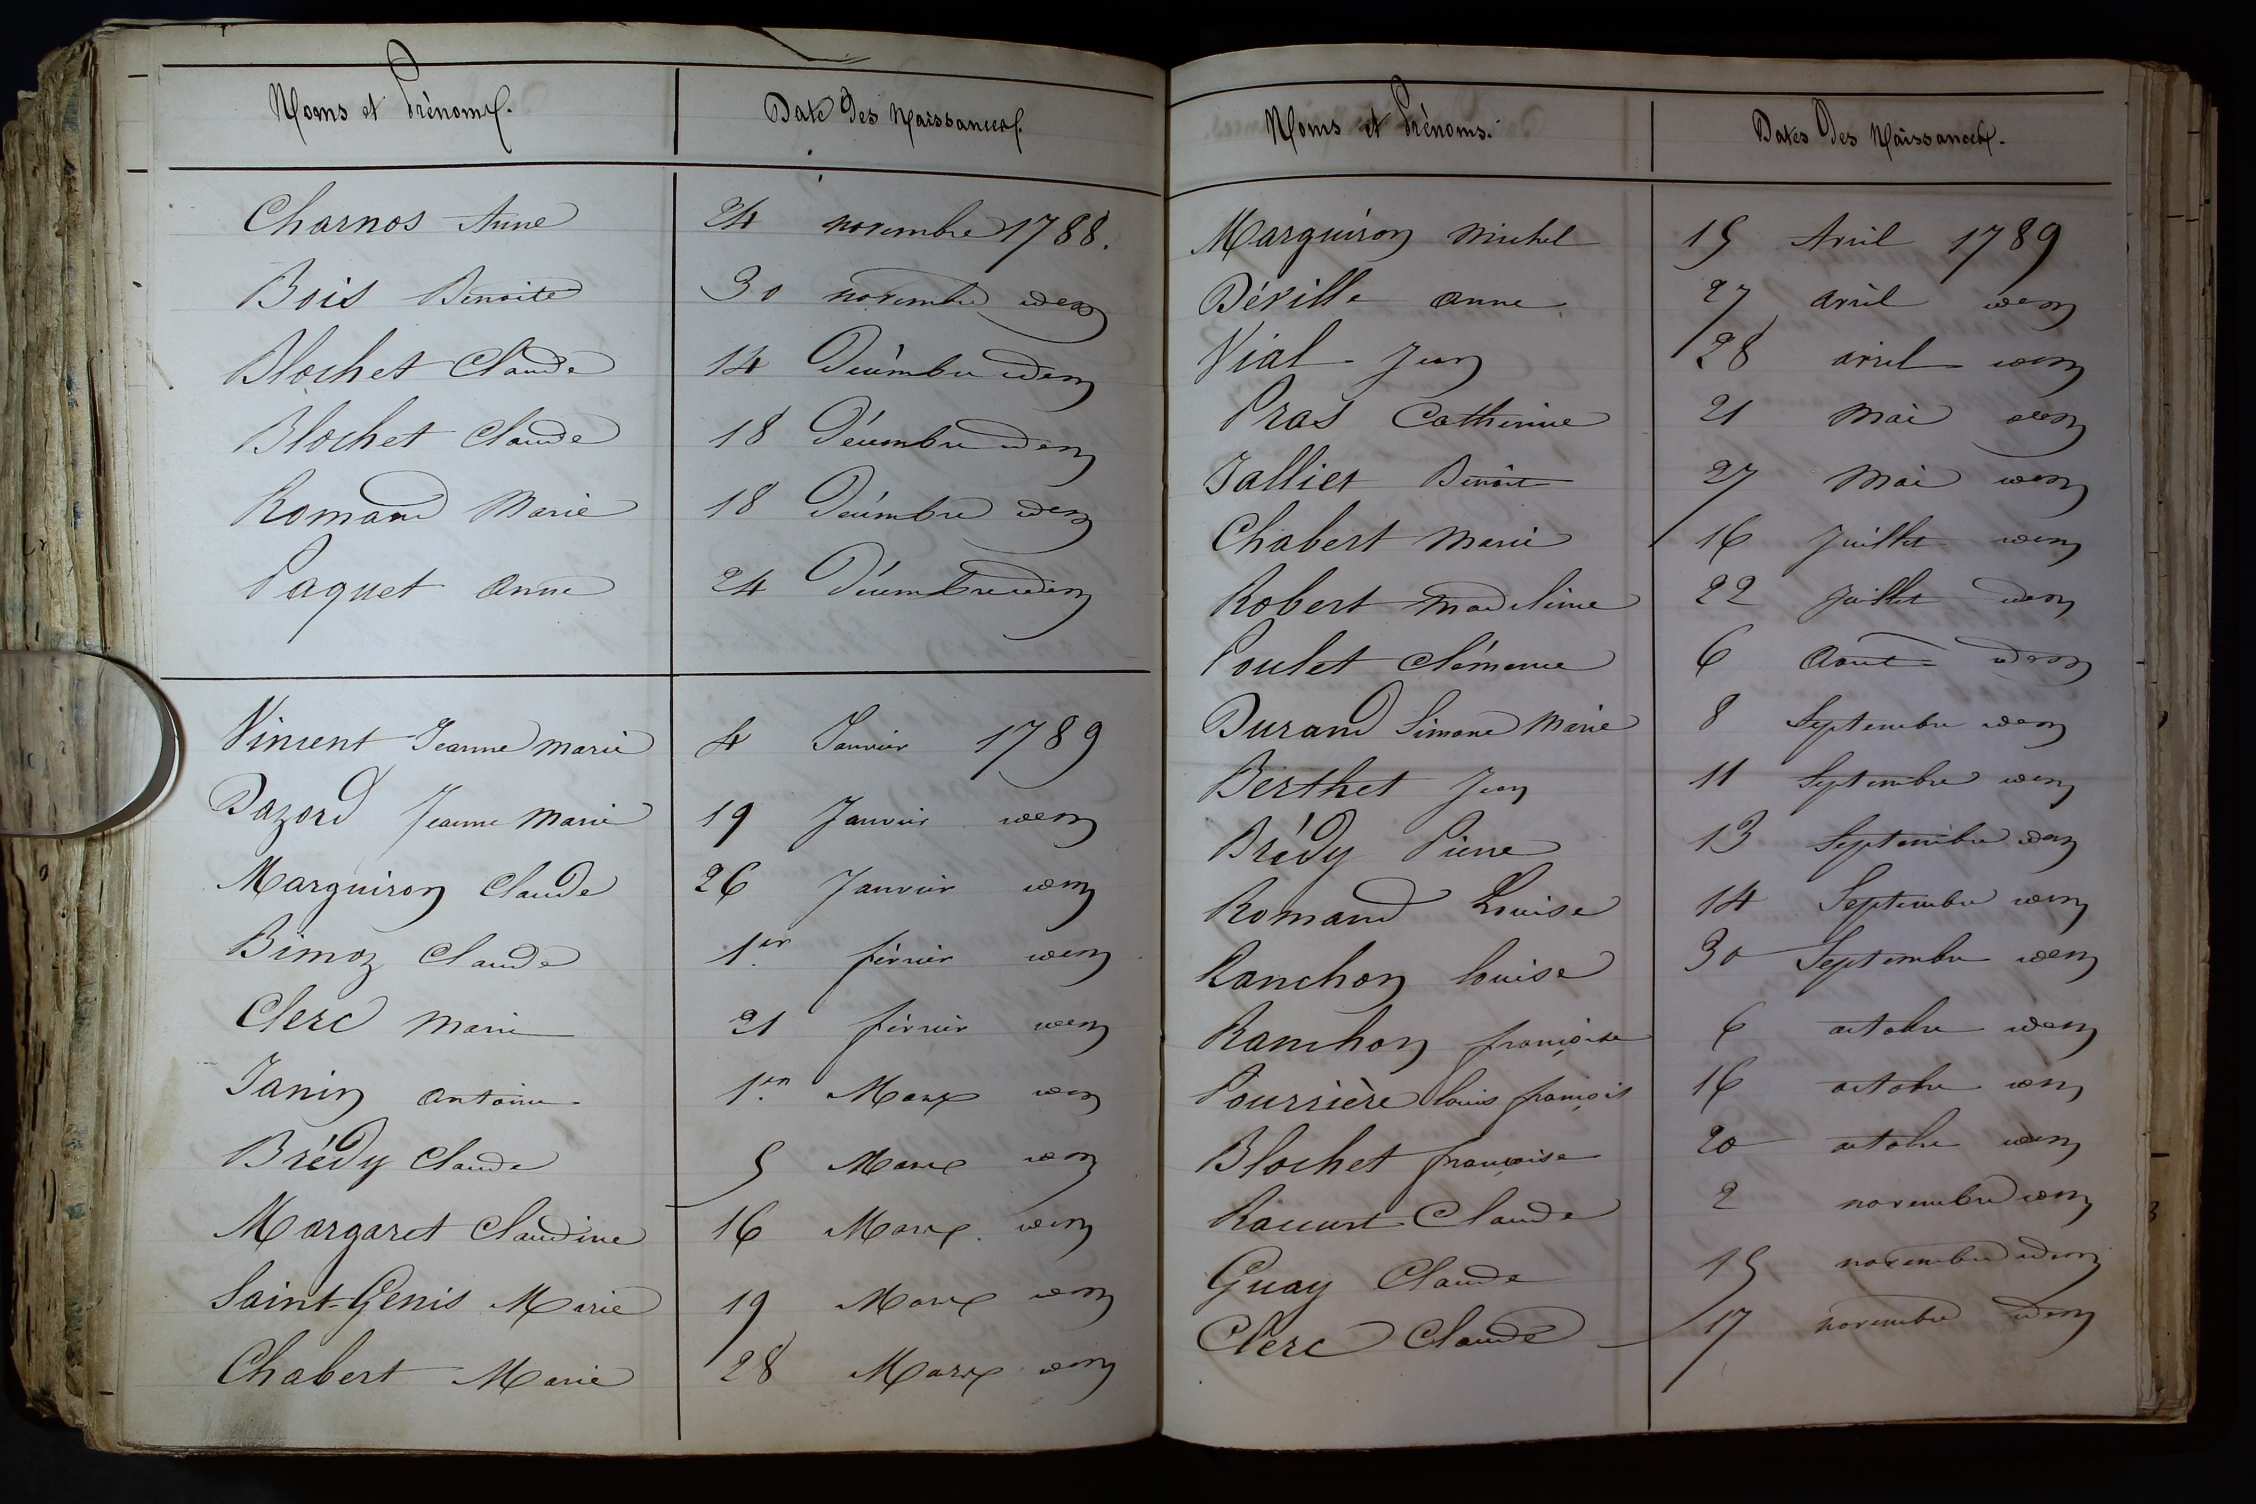 Noms et Prénoms.
Date des Naissances.
Charnos Anne 24 novembre 1788.
Bois Benoite 30 novembre idem
Blochet Claude 14 Décembre idem
Blochet Claude 18 Décembre idem
Romand Marie 18 Décembre idem
Paquet Anne 24 Décembre idem
Vincent Jeanne Marie 4 Janvier 1789
Dazord Jeanne Marie 19 Janvier idem
Marguiron Claude 26 Janvier idem
Bimoz Claude 1er février idem
Clerc Marie 21 février idem
Janin antoine 1er Mars idem
Brédy Claude 5 Mars idem
Margaret Claudine 16 Mars idem
Saint-Genis Marie 19 Mars idem
Chabert Marie 28 Mars idem
Noms et Prénoms.
Dates des Naissances.
Marguiron Michel 15 Avril 1789
Déville Anne 27 avril idem
Vial Jean 28 avril idem
Pras Catherine 21 Mai idem
Jalliet Benoit 27 Mai idem
Chabert Marie 16 Juillet idem
Robert Madeleine 22 Juillet idem
Poulet Clémence 6 Aout idem
Durand Simone Marie 8 Septembre idem
Berthet Jean 11 Septembre idem
Brédy Pierre 13 Septembre idem
Romand Louise 14 Septembre idem
Ranchon louise 30 Septembre idem
Ranchon françoise 6 octobre idem
Pourrière louis françois 16 octobre idem
Blochet françoise 20 octobre idem
Raccurt Claude 2 novembre idem
Guay Claude 15 novembre idem
Clerc Claude 17 novembre idem